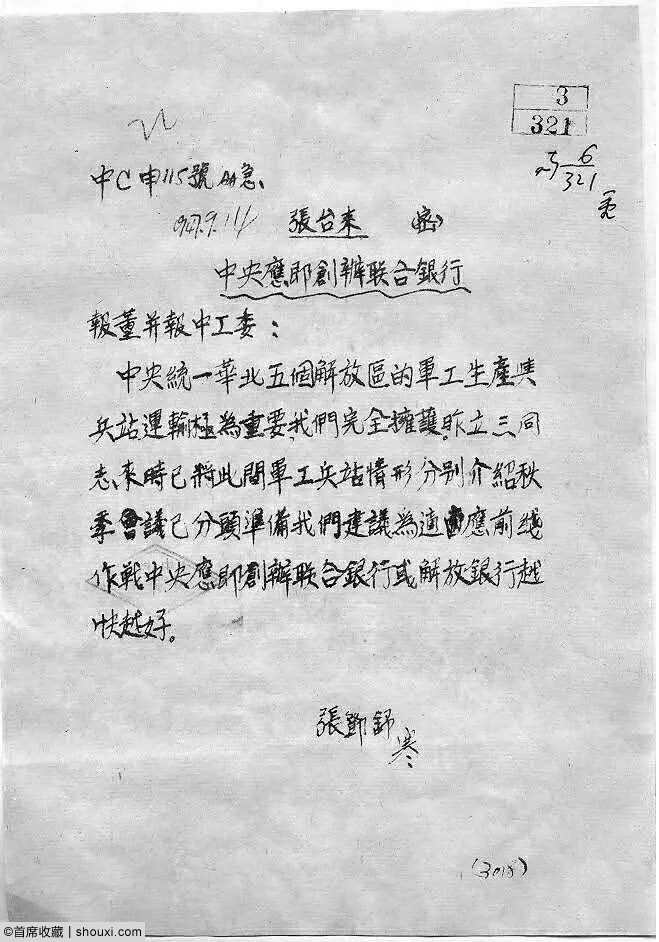 3
321
6
321
中C申115號 急
947.9.14 張台來 (密)
中央應即創辦联合銀行
報董并報中工委：
中央統一華北五個解放區的軍工生產與
兵站運輸極為重要，我們完全擁護。昨立三同
志來時已將此間軍工兵站情形分別介紹秋
季會議已分頭準備我們建議為適應前线
作戰中央應即創辦联合銀行或解放銀行越
快越好。
張鄧
寒
(3018)
©首席收藏 | shouxi.com